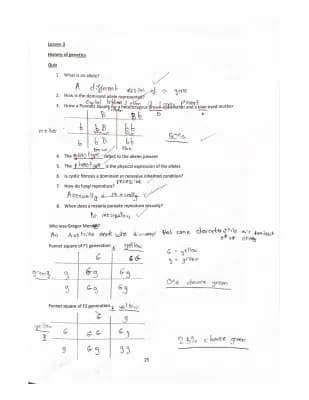 Lesson 3
History of genetics
Quiz
1. What is an allele?
A different version of a gene
2. How is the dominant allele represented?
Capital letters
3. Draw a Punnett square for a heterozygous brown eyed father and a blue eyed mother
B b
b bB bb
b bB bb
50%
4. The genotype refers to the alleles present
5. The phenotype is the physical expression of the alleles
6. Is cystic fibrosis a dominant or recessive inherited condition?
recessive
7. How do fungi reproduce?
8. When does a malaria parasite reproduce sexually?
in mosquitoes
Who was Gregor Mendel?
An Austrian monk who
Punnet square of F1 generation yellow
G G
g Gg Gg
g Gg Gg
G = yellow
g = green
chance green
Punnet square of F2 generation yellow
G g
yellow G GG Gg
g Gg gg
25% chance green
25